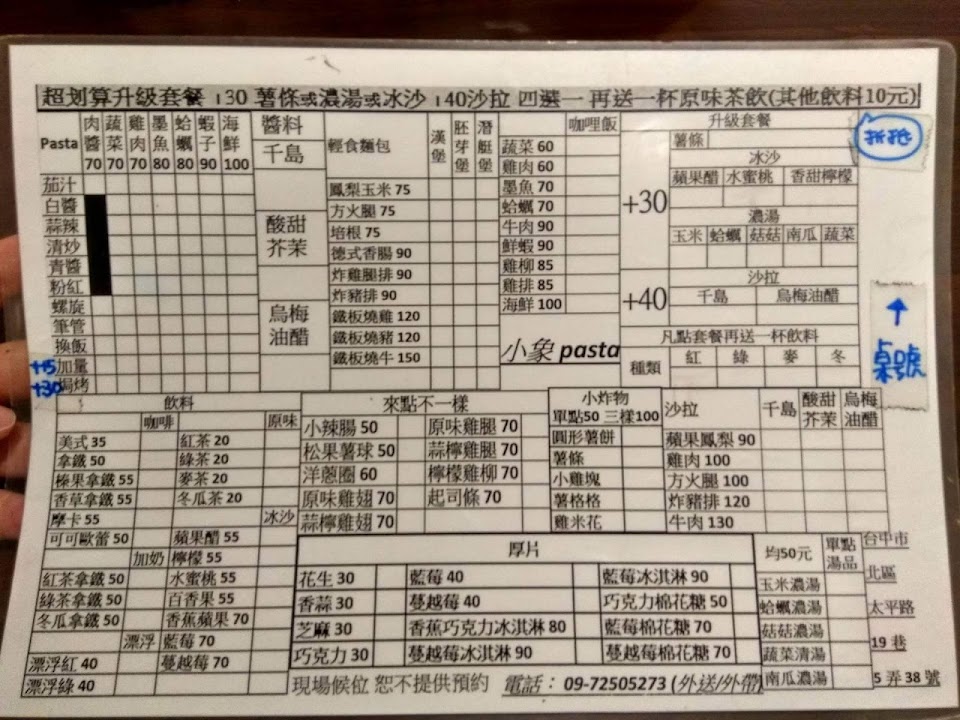 超划算升級套餐 +30 薯條或濃湯或冰沙 +40沙拉 四選一 再送一杯原味茶飲(其他飲料10元)
折抵
Pasta 肉醬70 蔬菜70 雞肉70 墨魚80 蛤蠣80 蝦子90 海鮮100
茄汁
白醬
蒜辣
清炒
青醬
粉紅
螺旋
筆管
換飯
+15 加量
+30 焗烤
醬料
千島
酸甜芥茉
烏梅油醋
輕食麵包 漢堡 胚芽堡 潛艇堡
鳳梨玉米 75
方火腿 75
培根 75
德式香腸 90
炸雞腿排 90
炸豬排 90
鐵板燒雞 120
鐵板燒豬 120
鐵板燒牛 150
咖哩飯
蔬菜 60
雞肉 60
墨魚 70
蛤蠣 70
牛肉 90
鮮蝦 90
雞柳 85
雞排 85
海鮮 100
小象 pasta
升級套餐
+30
薯條
冰沙
蘋果醋 水蜜桃 香甜檸檬
濃湯
玉米 蛤蠣 菇菇 南瓜 蔬菜
+40
沙拉
千島 烏梅油醋
凡點套餐再送一杯飲料
種類 紅 綠 麥 冬
↑
桌號
飲料
咖啡 原味
美式 35 紅茶 20
拿鐵 50 綠茶 20
榛果拿鐵 55 麥茶 20
香草拿鐵 55 冬瓜茶 20
摩卡 55 冰沙
可可歐蕾 50 蘋果醋 55
加奶 檸檬 55
紅茶拿鐵 50 水蜜桃 55
綠茶拿鐵 50 百香果 55
冬瓜拿鐵 50 香蕉蘋果 70
漂浮 藍莓 70
漂浮紅 40 蔓越莓 70
漂浮綠 40
來點不一樣
小辣腸 50 原味雞腿 70
松果薯球 50 蒜檸雞腿 70
洋蔥圈 60 檸檬雞柳 70
原味雞翅 70 起司條 70
蒜檸雞翅 70
小炸物
單點50 三樣100
圓形薯餅
薯條
小雞塊
薯格格
雞米花
沙拉 千島 酸甜芥茉 烏梅油醋
蘋果鳳梨 90
雞肉 100
方火腿 100
炸豬排 120
牛肉 130
厚片
花生 30 藍莓 40 藍莓冰淇淋 90
香蒜 30 蔓越莓 40 巧克力棉花糖 50
芝麻 30 香蕉巧克力冰淇淋 80 藍莓棉花糖 70
巧克力 30 蔓越莓冰淇淋 90 蔓越莓棉花糖 70
均50元 單點湯品
玉米濃湯
蛤蠣濃湯
菇菇濃湯
蔬菜清湯
南瓜濃湯
台中市
北區
太平路
19 巷
5 弄 38 號
現場候位 恕不提供預約 電話： 09-72505273 (外送/外帶)